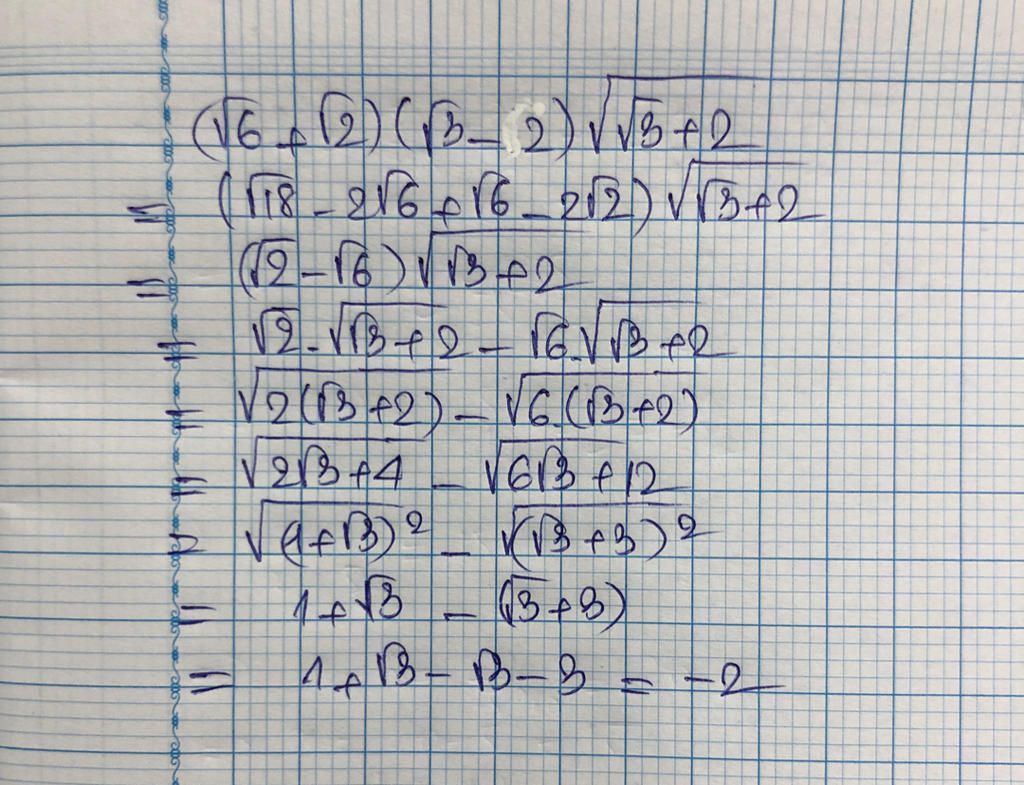 (√6 + √2)(√3 - 2)√(√3 + 2)
= (√18 - 2√6 + √6 - 2√2)√(√3 + 2)
= (√2 - √6)√(√3 + 2)
= √2 . √(√3 + 2) - √6 . √(√3 + 2)
= √(2(√3 + 2)) - √(6.(√3 + 2))
= √(2√3 + 4) - √(6√3 + 12)
= √((1 + √3)²) - √((√3 + 3)²)
= 1 + √3 - (√3 + 3)
= 1 + √3 - √3 - 3 = -2